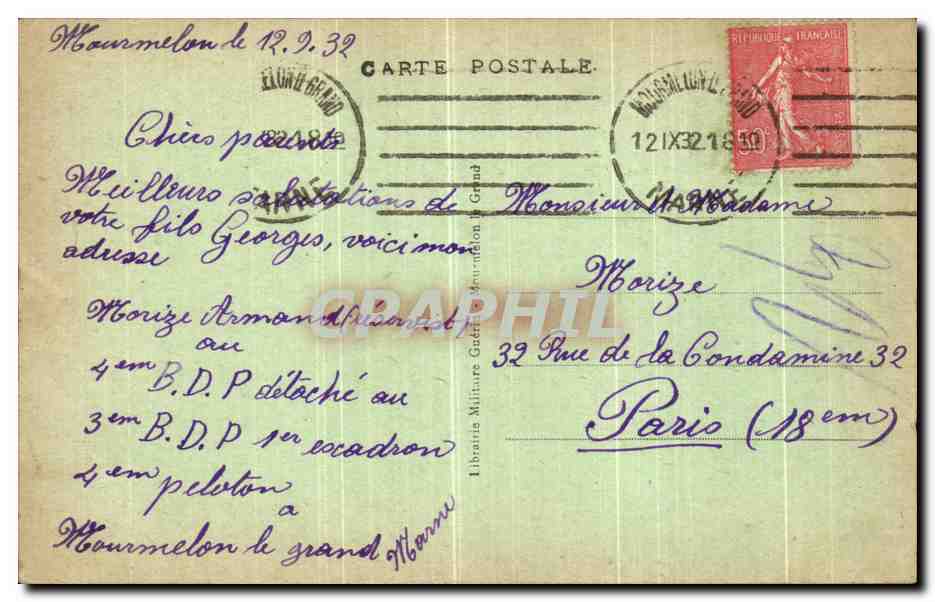 Mourmelon le 12.9.32
CARTE POSTALE
RÉPUBLIQUE FRANÇAISE
MARNE
12 IX 32 18
MARNE
Chers parents
Meilleurs salutations de
votre fils Georges, voici mon
adresse
Morize Armand (réserviste)
au
4em B.D.P détaché au
3em B.D.P 1er escadron
4em peloton
a
Mourmelon le grand Marne
Librairie Militaire Guérin - Mourmelon le Grand
Monsieur et Madame
Morize
32 Rue de la Condamine 32
Paris (18em)
CRAPHIL